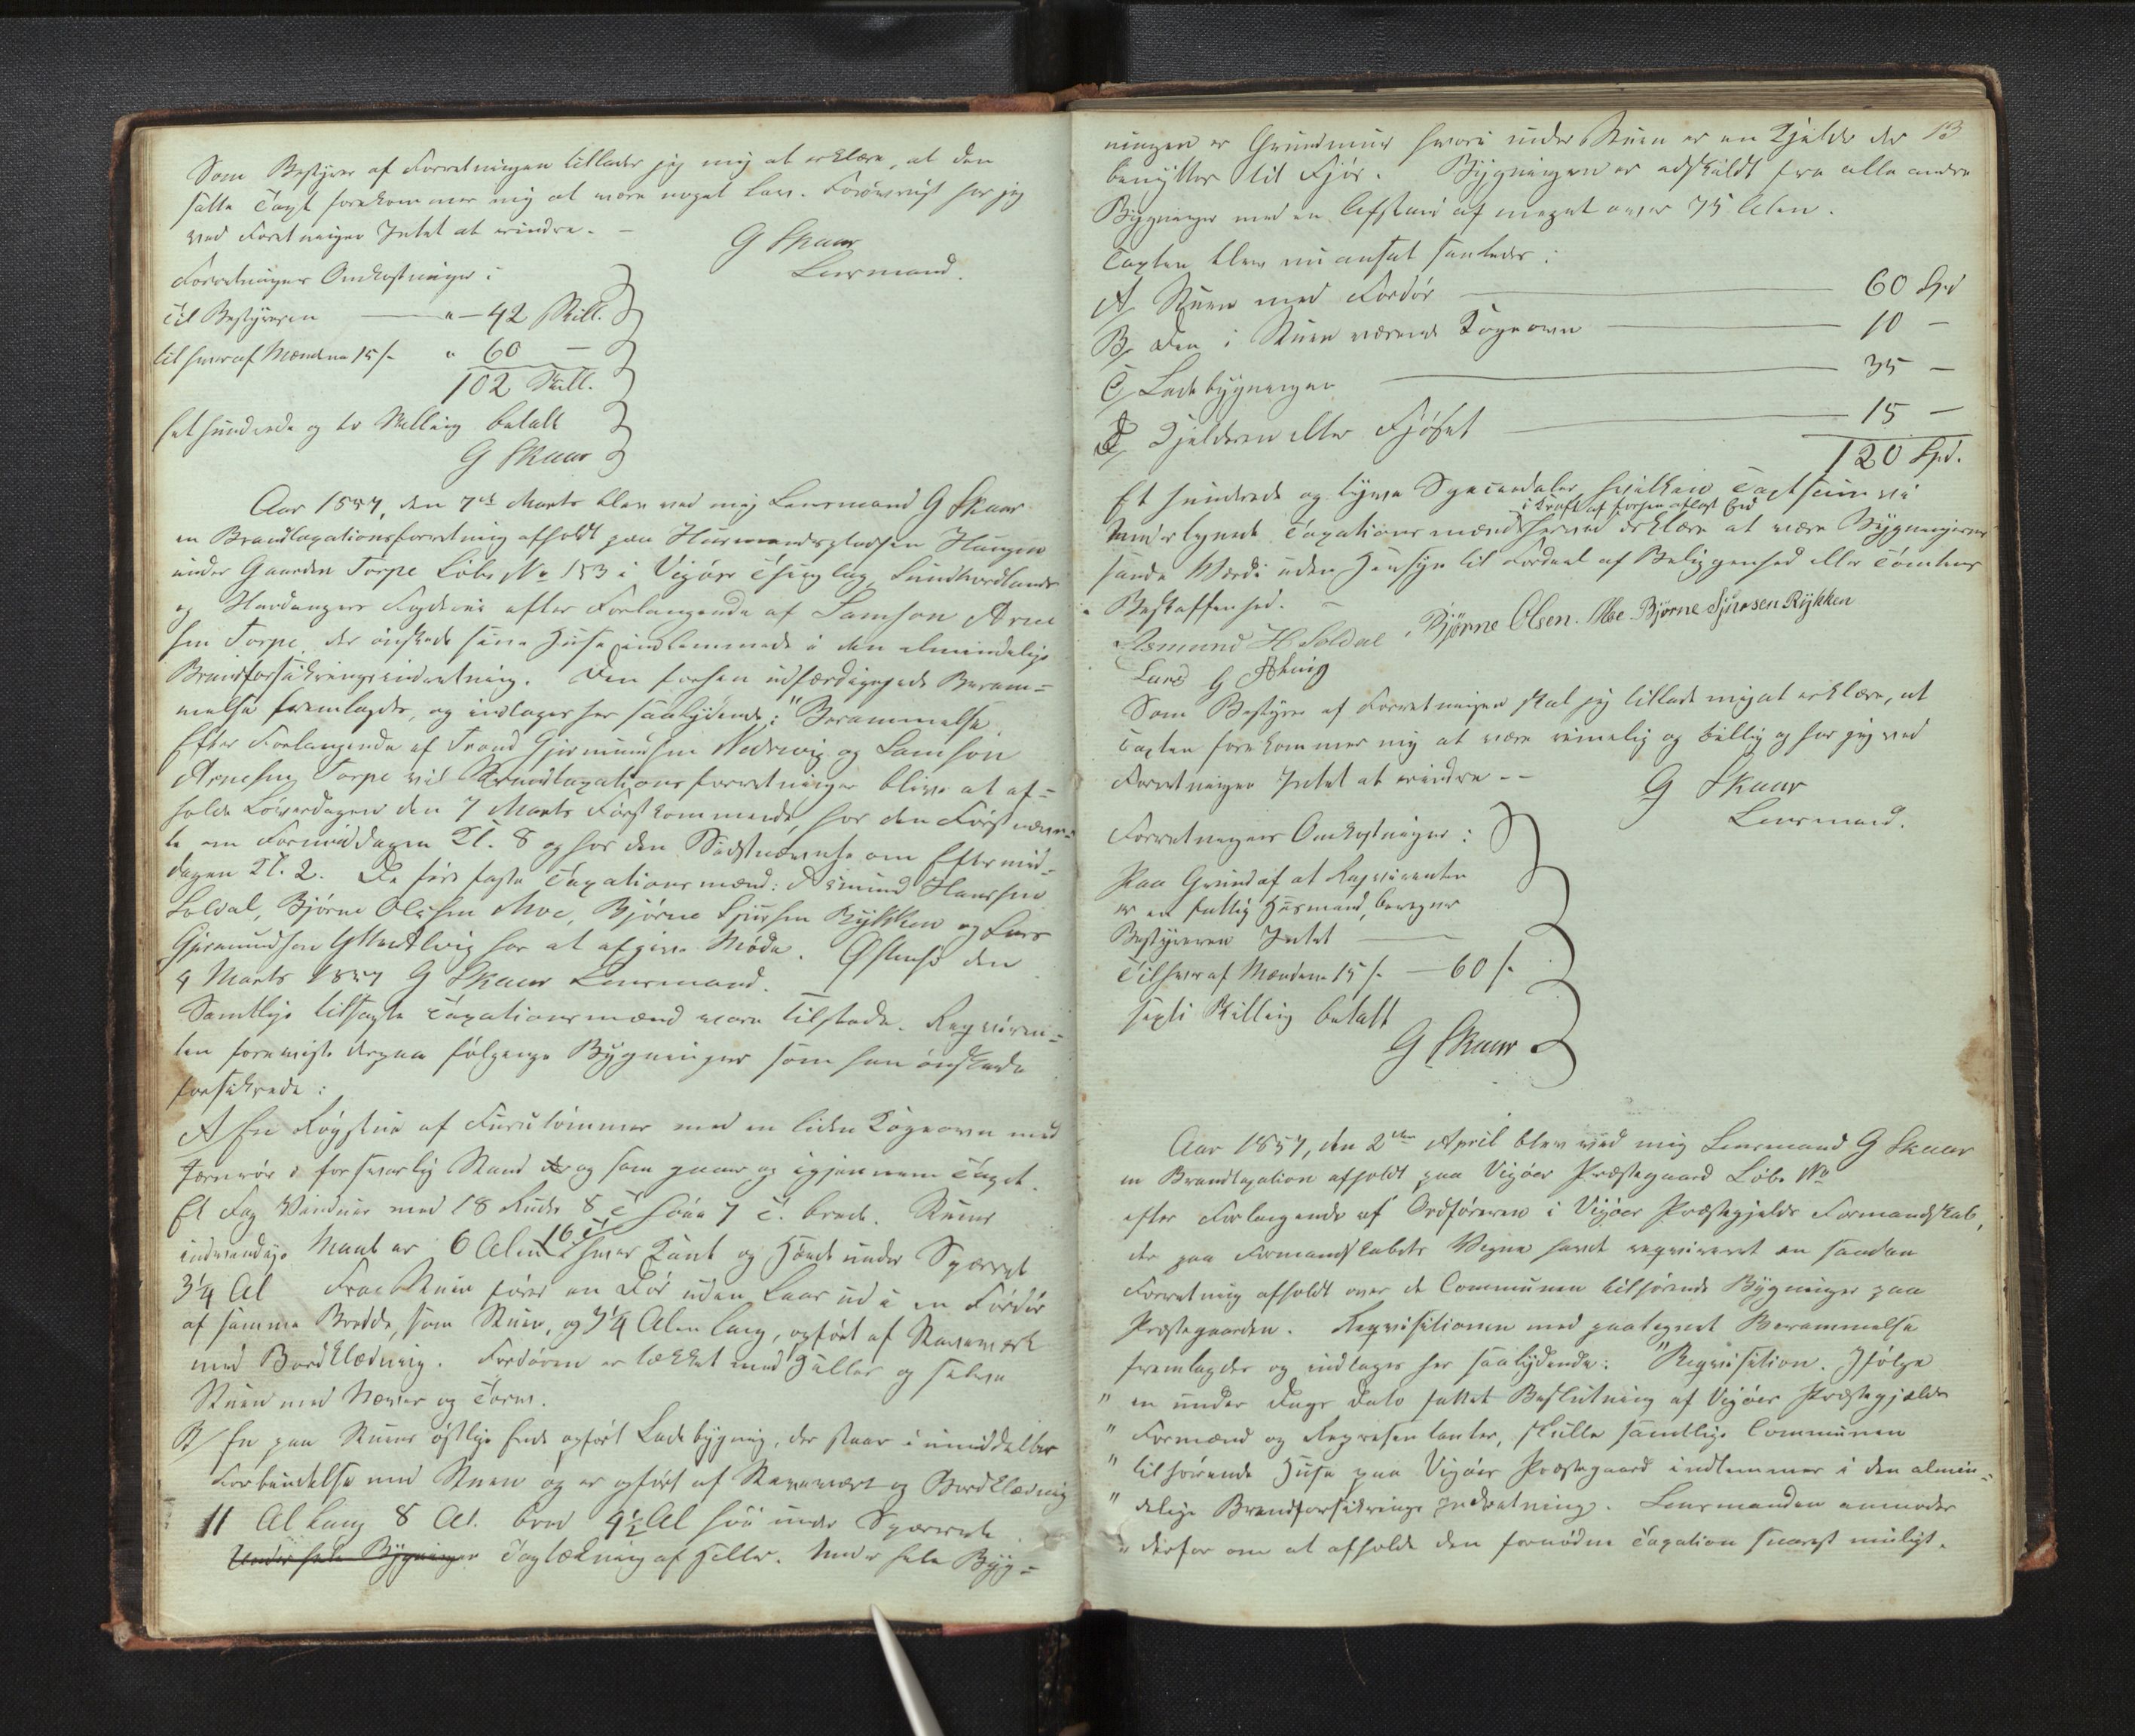 Som Bestyrer af Forretningen tillader jeg mig at erklære, at den
satte Taxt forekommer mig at være noget lav. Forøvrigt har jeg
ved Forretningen Intet at erindre. –
G Skaar
Lensmand.
Forretningens Omkostninger:
Til Bestyreren — " – 42 Skill.
til hver af Mændene 15 s. " 60 –
102 Skill.
Et hundrede og to Skilling betalt
G Skaar
Aar 1857, den 7de Marts blev ved mig Lensmand G Skaar
en Brandtaxationsforretning afholdt paa Huusmandspladsen Haugen
under Gaarden Torpe Løbe No 153 i Vigøer Thinglag, Søndhordlands
og Hardangers Fogderie efter Forlangende af Samson Arne
sen Torpe, der ønskede sine Huse indlemmede i den almindelige
Brandforsikringsindretning. Den forhen udfærdigede Beram=
melse fremlagdes, og indtages her saalydende: "Berammelse.
Efter Forlangende af Trond Geirmundsen Nedrevig og Samson
Arnesen Torpe vil Brandtaxationsforretninger blive at af=
holde Løverdagen den 7 Marts Førstkommende, hos den Førstnævn=
te om Formiddagen Kl. 8 og hos den Sidstnævnte om Eftermid=
dagen Kl. 2. De fire faste Taxationsmænd: Asmund Hansen
Soldal, Bjørne Olsen Moe, Bjørne Sjursen Rykken og Lars
Geirmundsen Ytre Aalvig har at afgive Møde. Østensø den
4 Marts 1857 G Skaar Lensmand.
Samtlige tilsagte Taxationsmænd vare tilstede. Reqviren=
ten foreviste derpaa følgende Bygninger som han ønskede
forsikrede:
A En Røgstue af Furutømmer med en liden Kogeovn med
Jernrør i forsvarlig Stand og som gaar op igjennem Taget.
Et Fag Vinduer med 18 Ruder 8 T. høie 7 T. brede. Stuens
indvendige Maal er 6 Alen 16 T. hver Kant og Høide under Sperret
3¼ Al Fra Stuen fører en Dør uden Laas ud i en Fordør
af samme Bredde, som Stuen, og 3¼ Alen lang, opført af Stavværk
med Bordklædning. Fordøren er tækket med Heller og selve
Stuen med Næver og Torv.
B/ En paa Stuens østlige Ende opført Ladebygning, der staar i umiddelbar
Forbindelse med Stuen og er opført af Stavværk og Bordklædning
11 Al lang 8 Al. bred 4½ Al høi under Sperrerne
Under hele Bygningen Tagtækning af Heller. Under hele Byg=
13
ningen er Grundmuur hvori under Stuen er en Kjelder der
benyttes til Fjøs. Bygningen er adskildt fra alle andre
Bygninger med en Afstand af meget over 75 Alen.
Taxten blev nu ansat saaledes:
A Stuen med Fordør — 60 Spd
B, Den i Stuen værende Kogeovn — 10 –
C, Ladebygningen — 35 –
D, Kjelderen eller Fjøset — 15 –
120 Spd.
Et hundrede og tyve Speciedaler hvilken Taxtsum vi
i Kraft af forhen aflagt Eed
undertegnede Taxationsmænd herved erklære at være Bygningernes
sande Værdi uden Hensyn til Fordeel af Beliggenhed eller Tomtens
Beskaffenhed. –
Asmund H Soldal, Bjørne Olsen. Moe. Bjørne Sjursen Rykken
Lars G Alvig
Som Bestyrer af Forretningen skal jeg tillade mig at erklære, at
Taxten forekommer mig at være rimelig og billig og har jeg ved
Forretningen Intet at erindre. –
G Skaar
Lensmand.
Forretningens Omkostninger:
Paa Grund af at Reqvirenten
er en fattig Husmand, beregner
Bestyreren Intet —
Til hver af Mændene 15 s. – 60 s.
sexti Skilling betalt
G Skaar
Aar 1857, den 2den April blev ved mig Lensmand G Skaar
en Brandtaxation afholdt paa Vigøer Præstegaard Løbe No
efter Forlangende af Ordføreren i Vigøer Præstegjelds Formandskab,
der paa Formandskabets Vegne havde reqvireret en saadan
Forretning afholdt over de Communen tilhørende Bygninger paa
Præstegaarden. Reqvisitionen med paategnet Berammelse
fremlagdes og indtages her saalydende: "Reqvisition. Ifølge
" en under Dags Dato fattet Beslutning af Vigøer Præstegjelds
" Formænd og Repræsentanter, skulle samtlige Communen
" tilhørende Huse paa Vigøer Præstegaard indlemmes i den almin=
" delige Brandforsikrings Indretning. Lensmanden anmodes
" derfor om at afholde den fornødne Taxation snarest muligt.